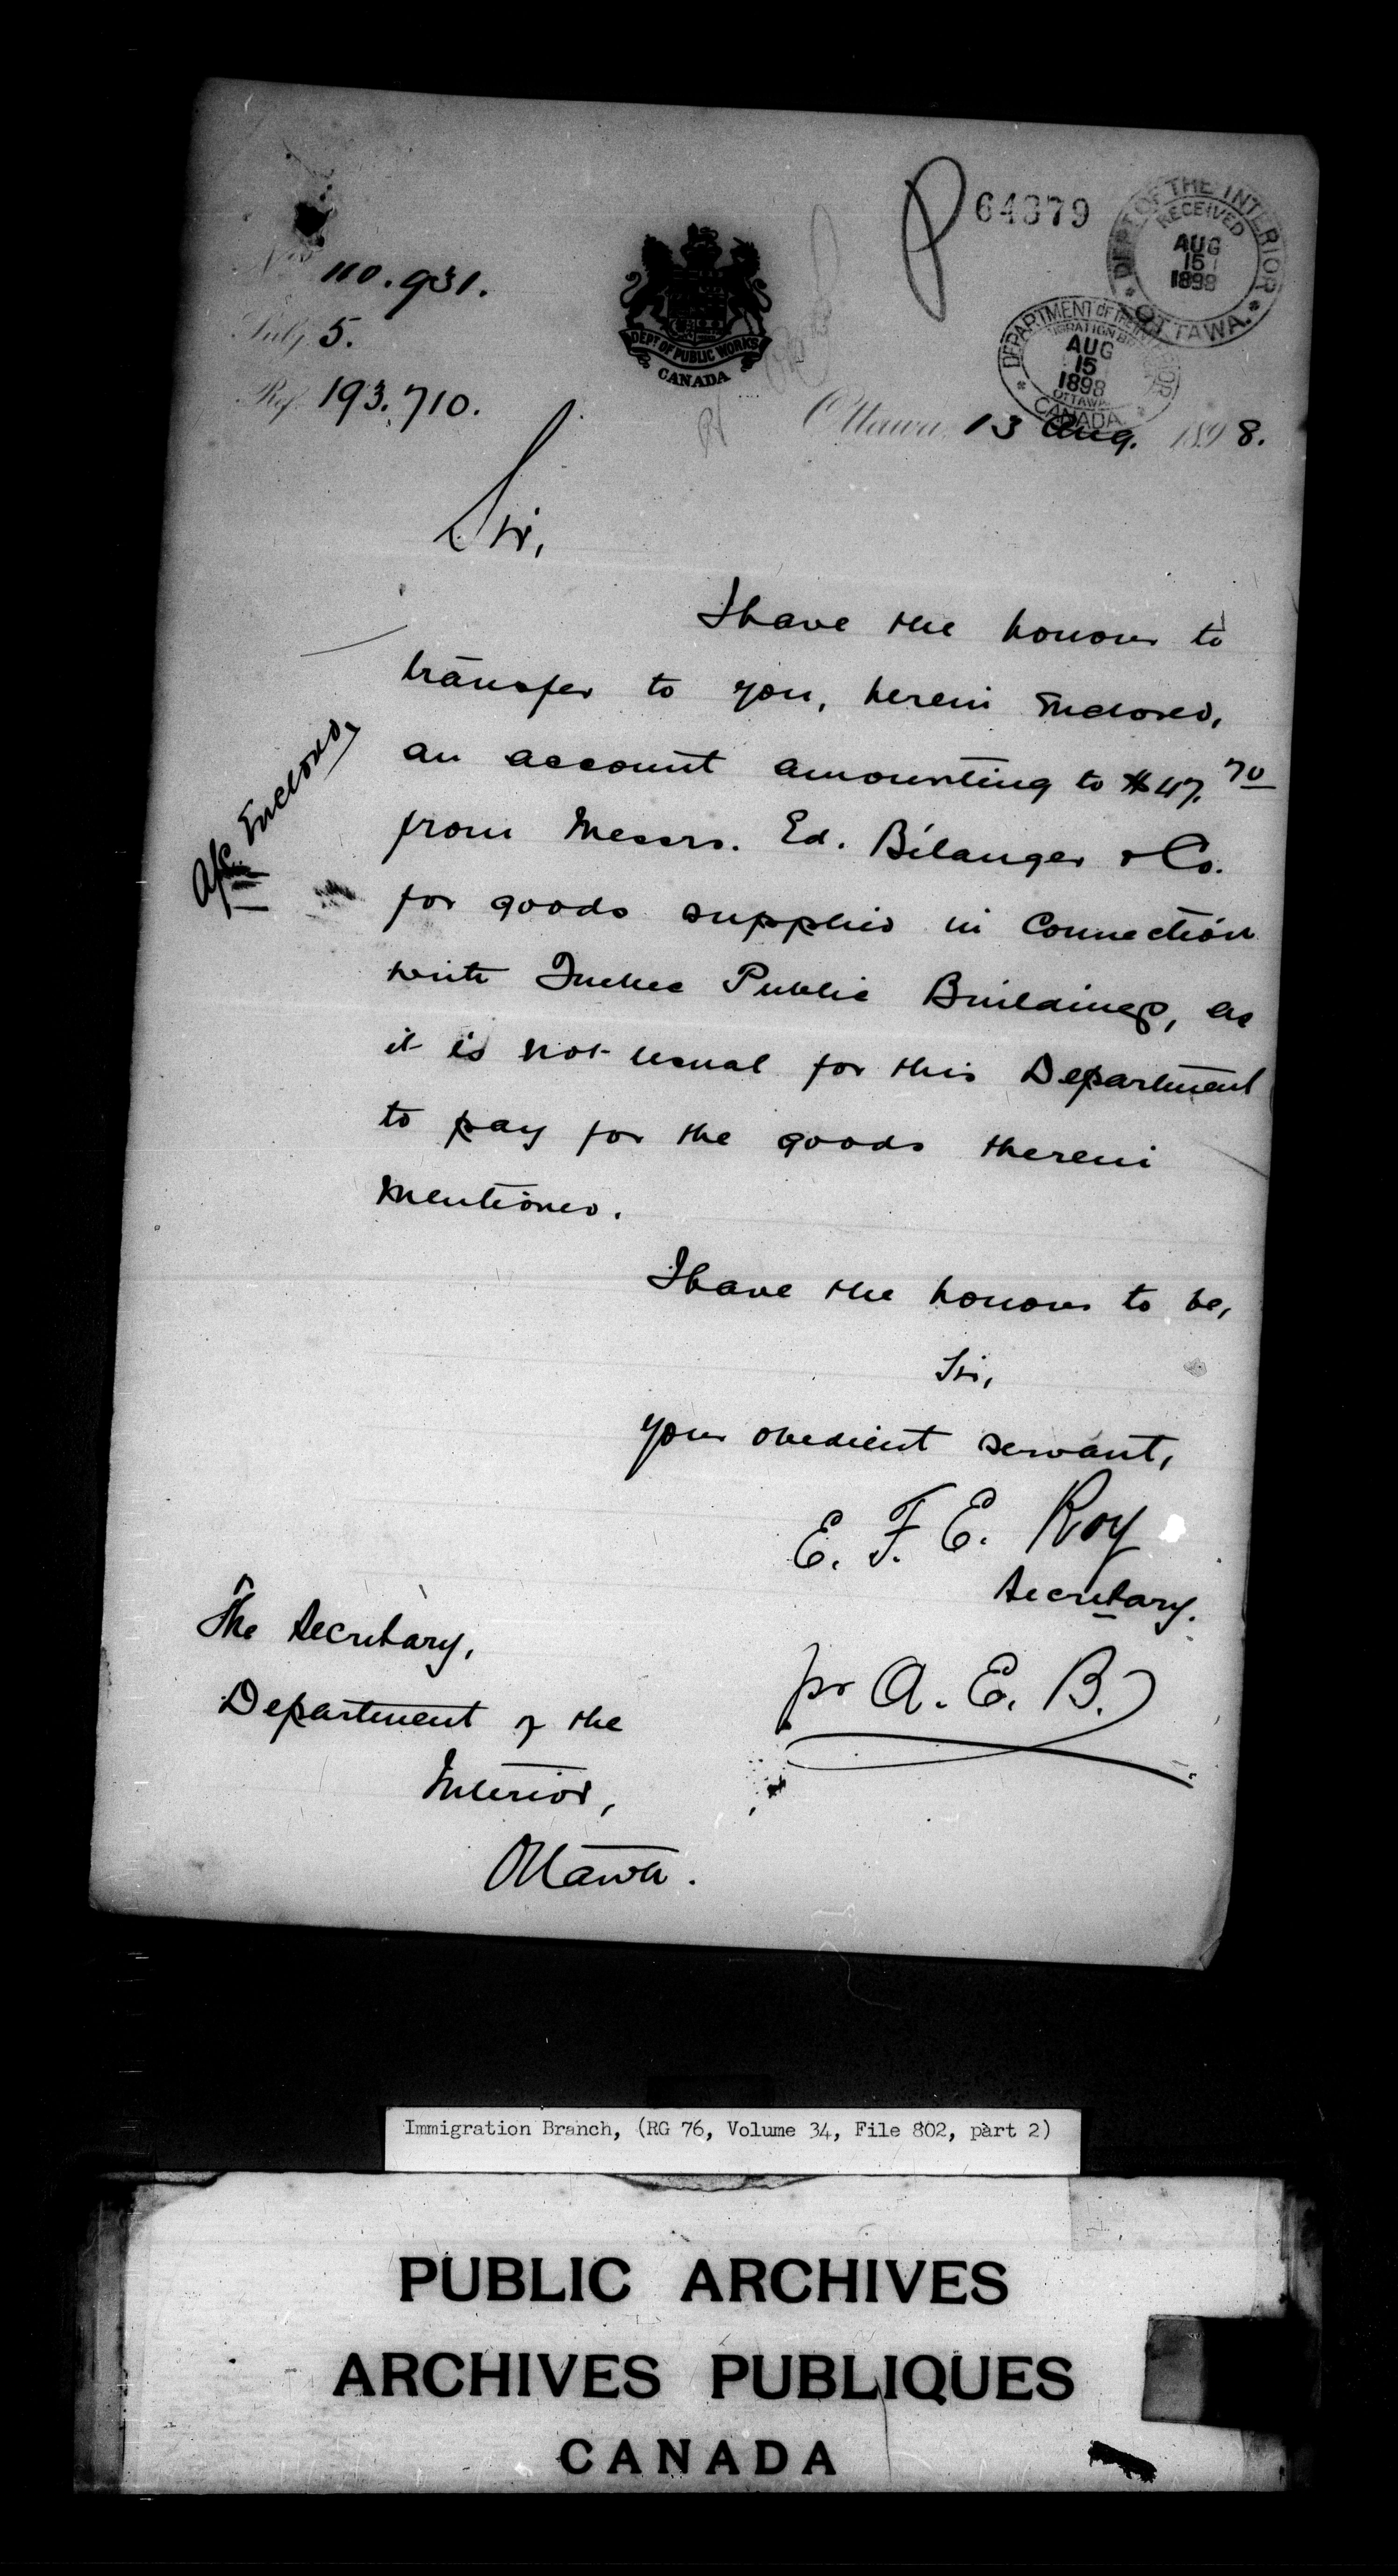 64879
DEPT OF THE INTERIOR
RECEIVED
AUG
15
1898
OTTAWA.
No. 110.931.
Subj. 5.
Ref. 193.710.
DEPT OF PUBLIC WORKS
CANADA
DEPARTMENT OF THE INTERIOR
AUG
15
1898
OTTAWA
CANADA
Ottawa, 13 Aug. 1898.
Sir,
I have the honour to
transfer to you, herein Enclosed,
an account amounting to $47.70
from Messrs. Ed. Bélanger & Co.
for goods supplied in Connection
with Quebec Public Buildings, as
it is not usual for this Department
to pay for the goods therein
mentioned.
a/c Enclosed
I have the honour to be,
Sir,
your obedient servant,
E. F. E. Roy
Secretary.
pr A. E. B.
The Secretary,
Department of the
Interior,
Ottawa.
Immigration Branch, (RG 76, Volume 34, File 802, part 2)
PUBLIC ARCHIVES
ARCHIVES PUBLIQUES
CANADA